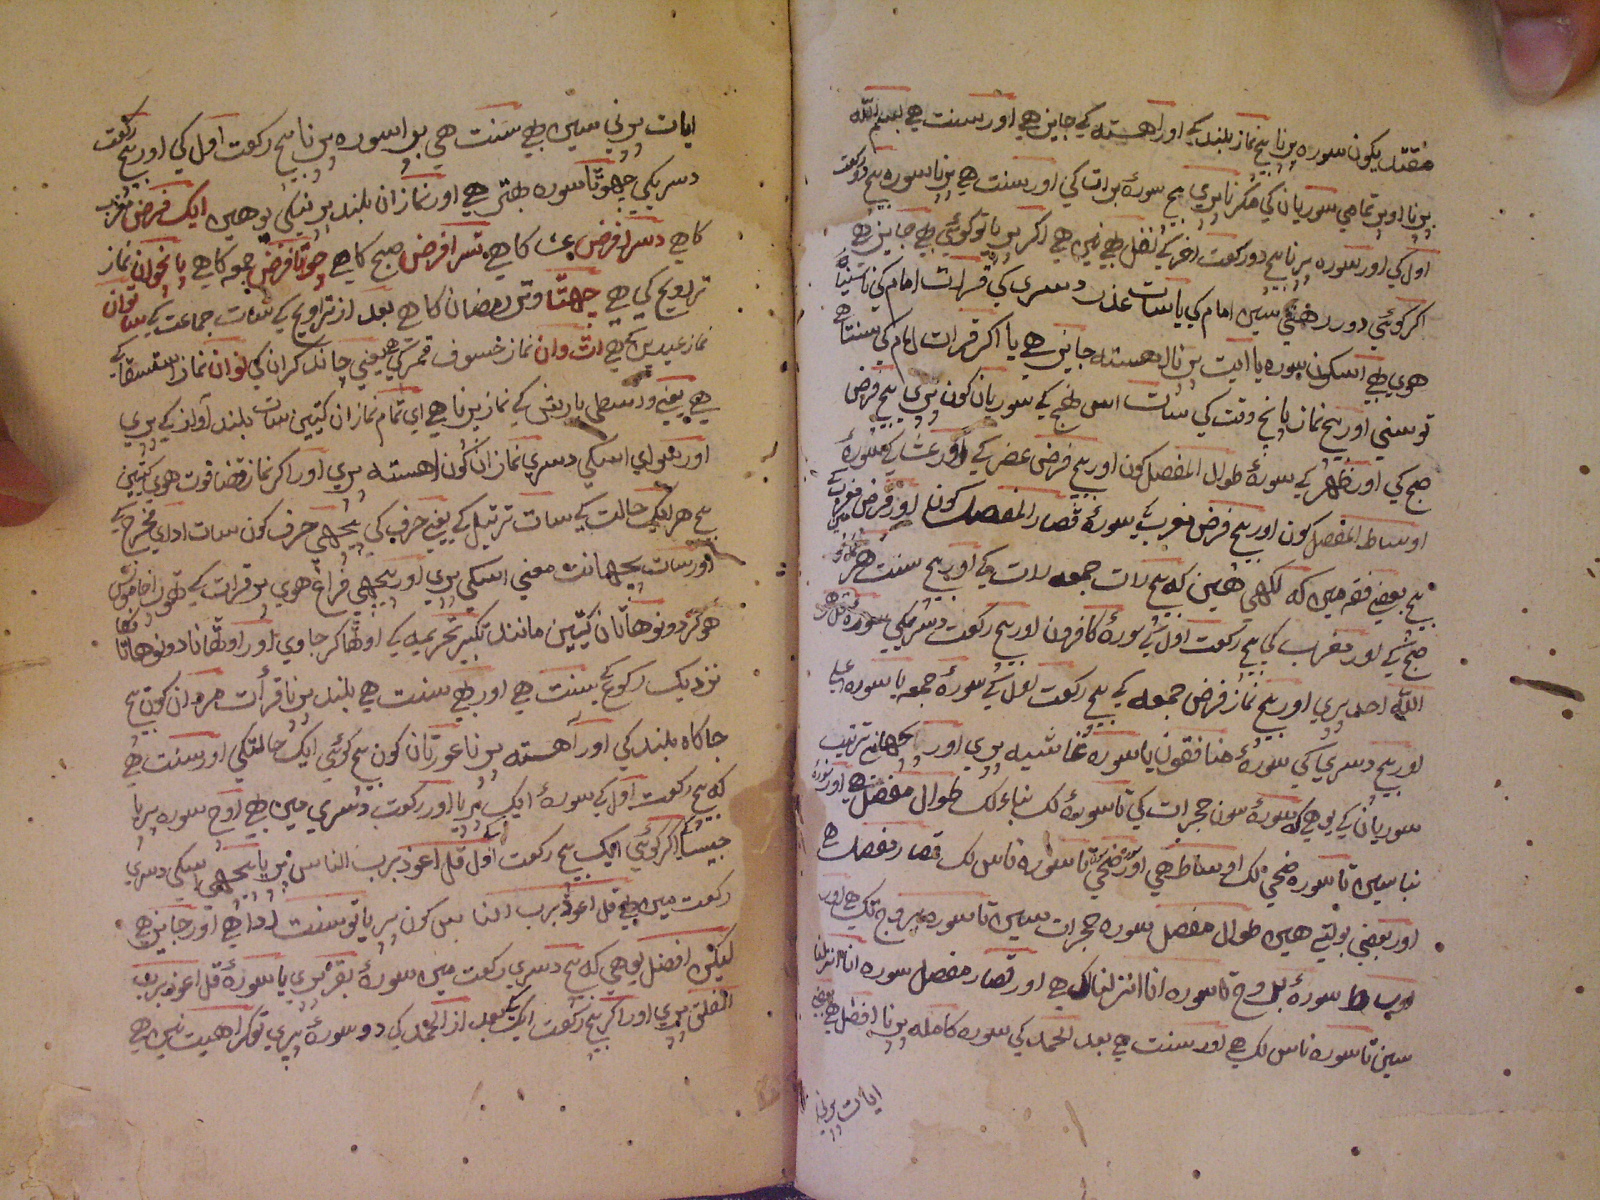 مقتدیکون سورہ پرنا بیچ نماز بلند کے اور اھستہ کے جایز ہے اور سنت ہے بسم اللہ
پرنا اوپر تمامی سوریان کی مکر ناپری بیچ سورۂ برات کی اور سنت ہے پرنا سورہ بیچ دو رکعت
اول کی اور سورہ پرنا بیچ دو رکعت اخر کے نفل ہے نہیں ہے اکر پریا تو کوئی ہے جایز ہے
اکر کوئی دور رھنے سین امام کی یا سات عذر دسری کی قرات امام کی ناسنیا
ھوی ہے اسکون سورہ یا ایت پرنا اھستہ جایز ہے یا اکر قرات امام کی سنتا ہے
تو سنی اور بیچ نماز پانچ وقت کی سات اس طرح کے سوریان کون پری بیچ فرض
صبح کی اور ظھر کے سورۂ طوال المفصل کون اور بیچ فرض عصر کے اور عشا کے سورۂ
اوساط المفصل کون اور بیچ فرض مغرب کے سورۂ قصار المفصل کون اور فرض مغرب کے
بیچ بعضے فقہ مین کہ لکھی ھین کہ بیچ رات جمعہ رات کے اور بیچ سنت
صبح کے اور مغرب کی بیچ رکعت اول کے سورۂ کافرون اور بیچ رکعت دسریکی سورۂ قل ھو
اللہ احد پری اور بیچ نماز فرض جمعہ کے بیچ رکعت اول کے سورۂ جمعہ یا سورہ
اور بیچ دسری کی سورۂ منافقون یا سورہ غاشیہ پری اور پچھانے ترتیب
سوریان کے یو ہے کہ سورۂ سون حجرات کی تا سورۂ لک نباء لک طوال مفصل ہے اور سورۂ
نبا سین تا سورہ ضحی لک اوساط ہی اور سورہ ضحی تا سورہ ناس لک قصار مفصل ہے
اور بعضی بولتے ھین طوال مفصل سورہ حجرات سین تا سورہ بروج تک ہے اور
اوساط سورۂ بروج تا سورہ انا انزلنا لک ہے اور قصار مفصل سورہ انا انزلنا
سین تا سورہ ناس لک ہے اور سنت ہے بعد الحمد کی سورہ کاملہ پرنا افضل ہے بعضے
ایات پرنی
ایات پرنی سین ہے سنت ہی پورا سورہ پرنا بیچ رکعت اول کی اور بیچ رکعت
دسریکی چھوٹا سورہ بھتر ہے اور نمازان بلند پرنیکی یو ھین ایک فرض مغرب
کا ہے دسرا فرض عشا کا ہے تسرا فرض صبح کا ہے چوتا فرض جمعہ کا ہے پانچوان نماز
تراویح کی ہے چھتا وتر رمضان کا ہے بعد از تراویح کے سات جماعت کے ساتوان
نماز عیدین کے ہے اٹ وان نماز خسوف قمر کی ہے یعنی چاند کران کی نوان نماز استسقا کے
ہے یعنے واسطی بارش کے نماز پرنا ہے ای تمام نمازان کیتین سات بلند آواز کے پری
اور سوای اسکی دسری نمازان کون اھستہ پری اور اکر نماز قضا فوت ھوی کیتین
بیچ ھر یک حالت کے سات ترتیل کے یعنے حرف کی پچھی حرف کون سات ادای مخرج کے
اور سات پچھانت معنی اسکی پری اور پیچھی فراغ ھوی پر قرات کے تھورا خاموش
ھوکر دونو ھاتان کیتین مانند تکبیر تحریمہ کے اوٹھا کر جاوی اور اوٹھانا دونو ھاتا
نزدیک رکوع کے سنت ہے اور ہے سنت ہے بلند پرنا قرأت مردان کون بیچ
جاکاہ بلند کی اور آھستہ پرنا عورتان کون بیچ کوئی ایک حالتکی اور سنت ہے
کہ بیچ رکعت اول کے سورۂ ایک پریا اور رکعت دسری مین ہے اوج سورہ پریا
جیسا کہ اکر کوئی ایک بیچ رکعت اول قل اعوذ برب الناس پریا پیچھی اسکی دسری
رکعت مین ہے قل اعوذ برب الناس کون پریا تو سنت ادا ہے اور جایز ہے
لیکن افضل یو ھی کہ بیچ دسری رکعت مین سورۂ بقرہ پری یا سورۂ قل اعوذ برب
الفلق پری اور اکر بیچ رکعت ایک کے بعد از الحمد کی دو سورۂ پری تو کراھیت نہین ہے